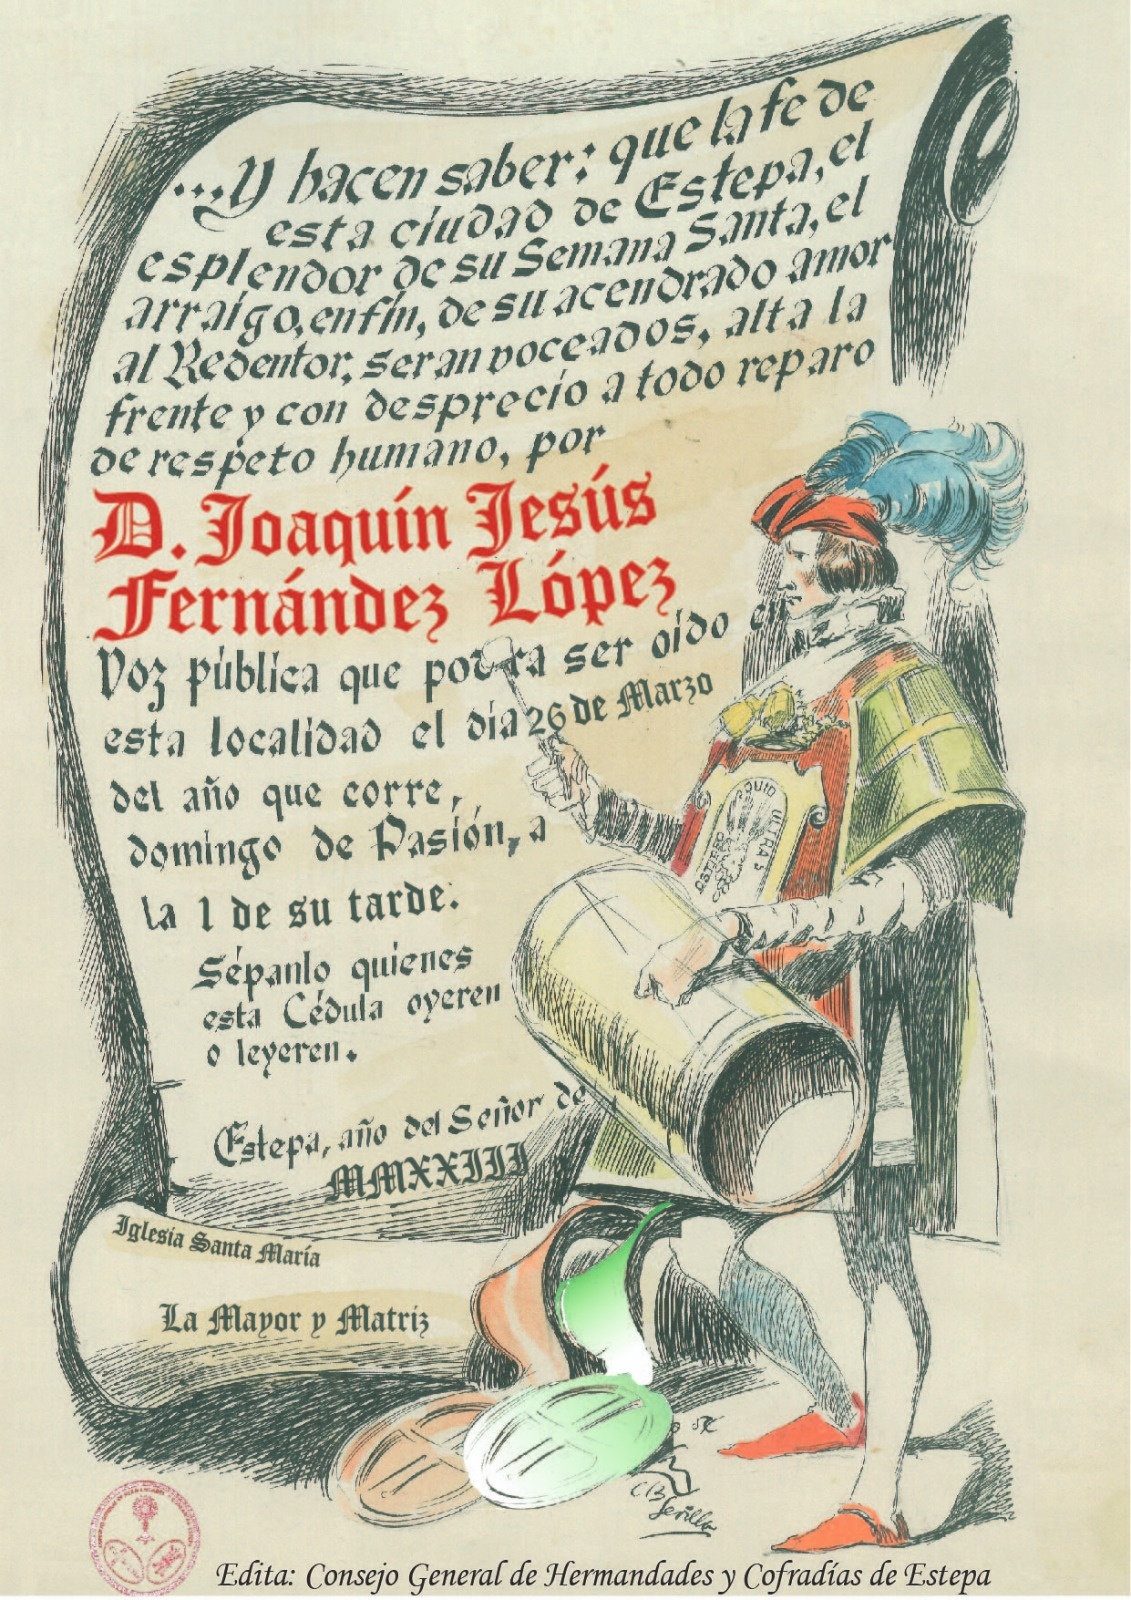 ...Y hacen saber: que la fe de
esta ciudad de Estepa, el
esplendor de su Semana Santa, el
arraigo, enfin, de su acendrado amor
al Redentor, seran voceados, alta la
frente y con desprecio a todo reparo
de respeto humano, por
D. Joaquín Jesús
Fernández López
Voz pública que podra ser oído
esta localidad el día 26 de Marzo
del año que corre,
domingo de Pasión, a
la 1 de su tarde.
Sépanlo quienes
esta Cédula oyeren
o leyeren.
Estepa, año del Señor de
MMXXIII
Iglesia Santa María
La Mayor y Matriz
QUID ULTRA
Sevilla
Edita: Consejo General de Hermandades y Cofradías de Estepa